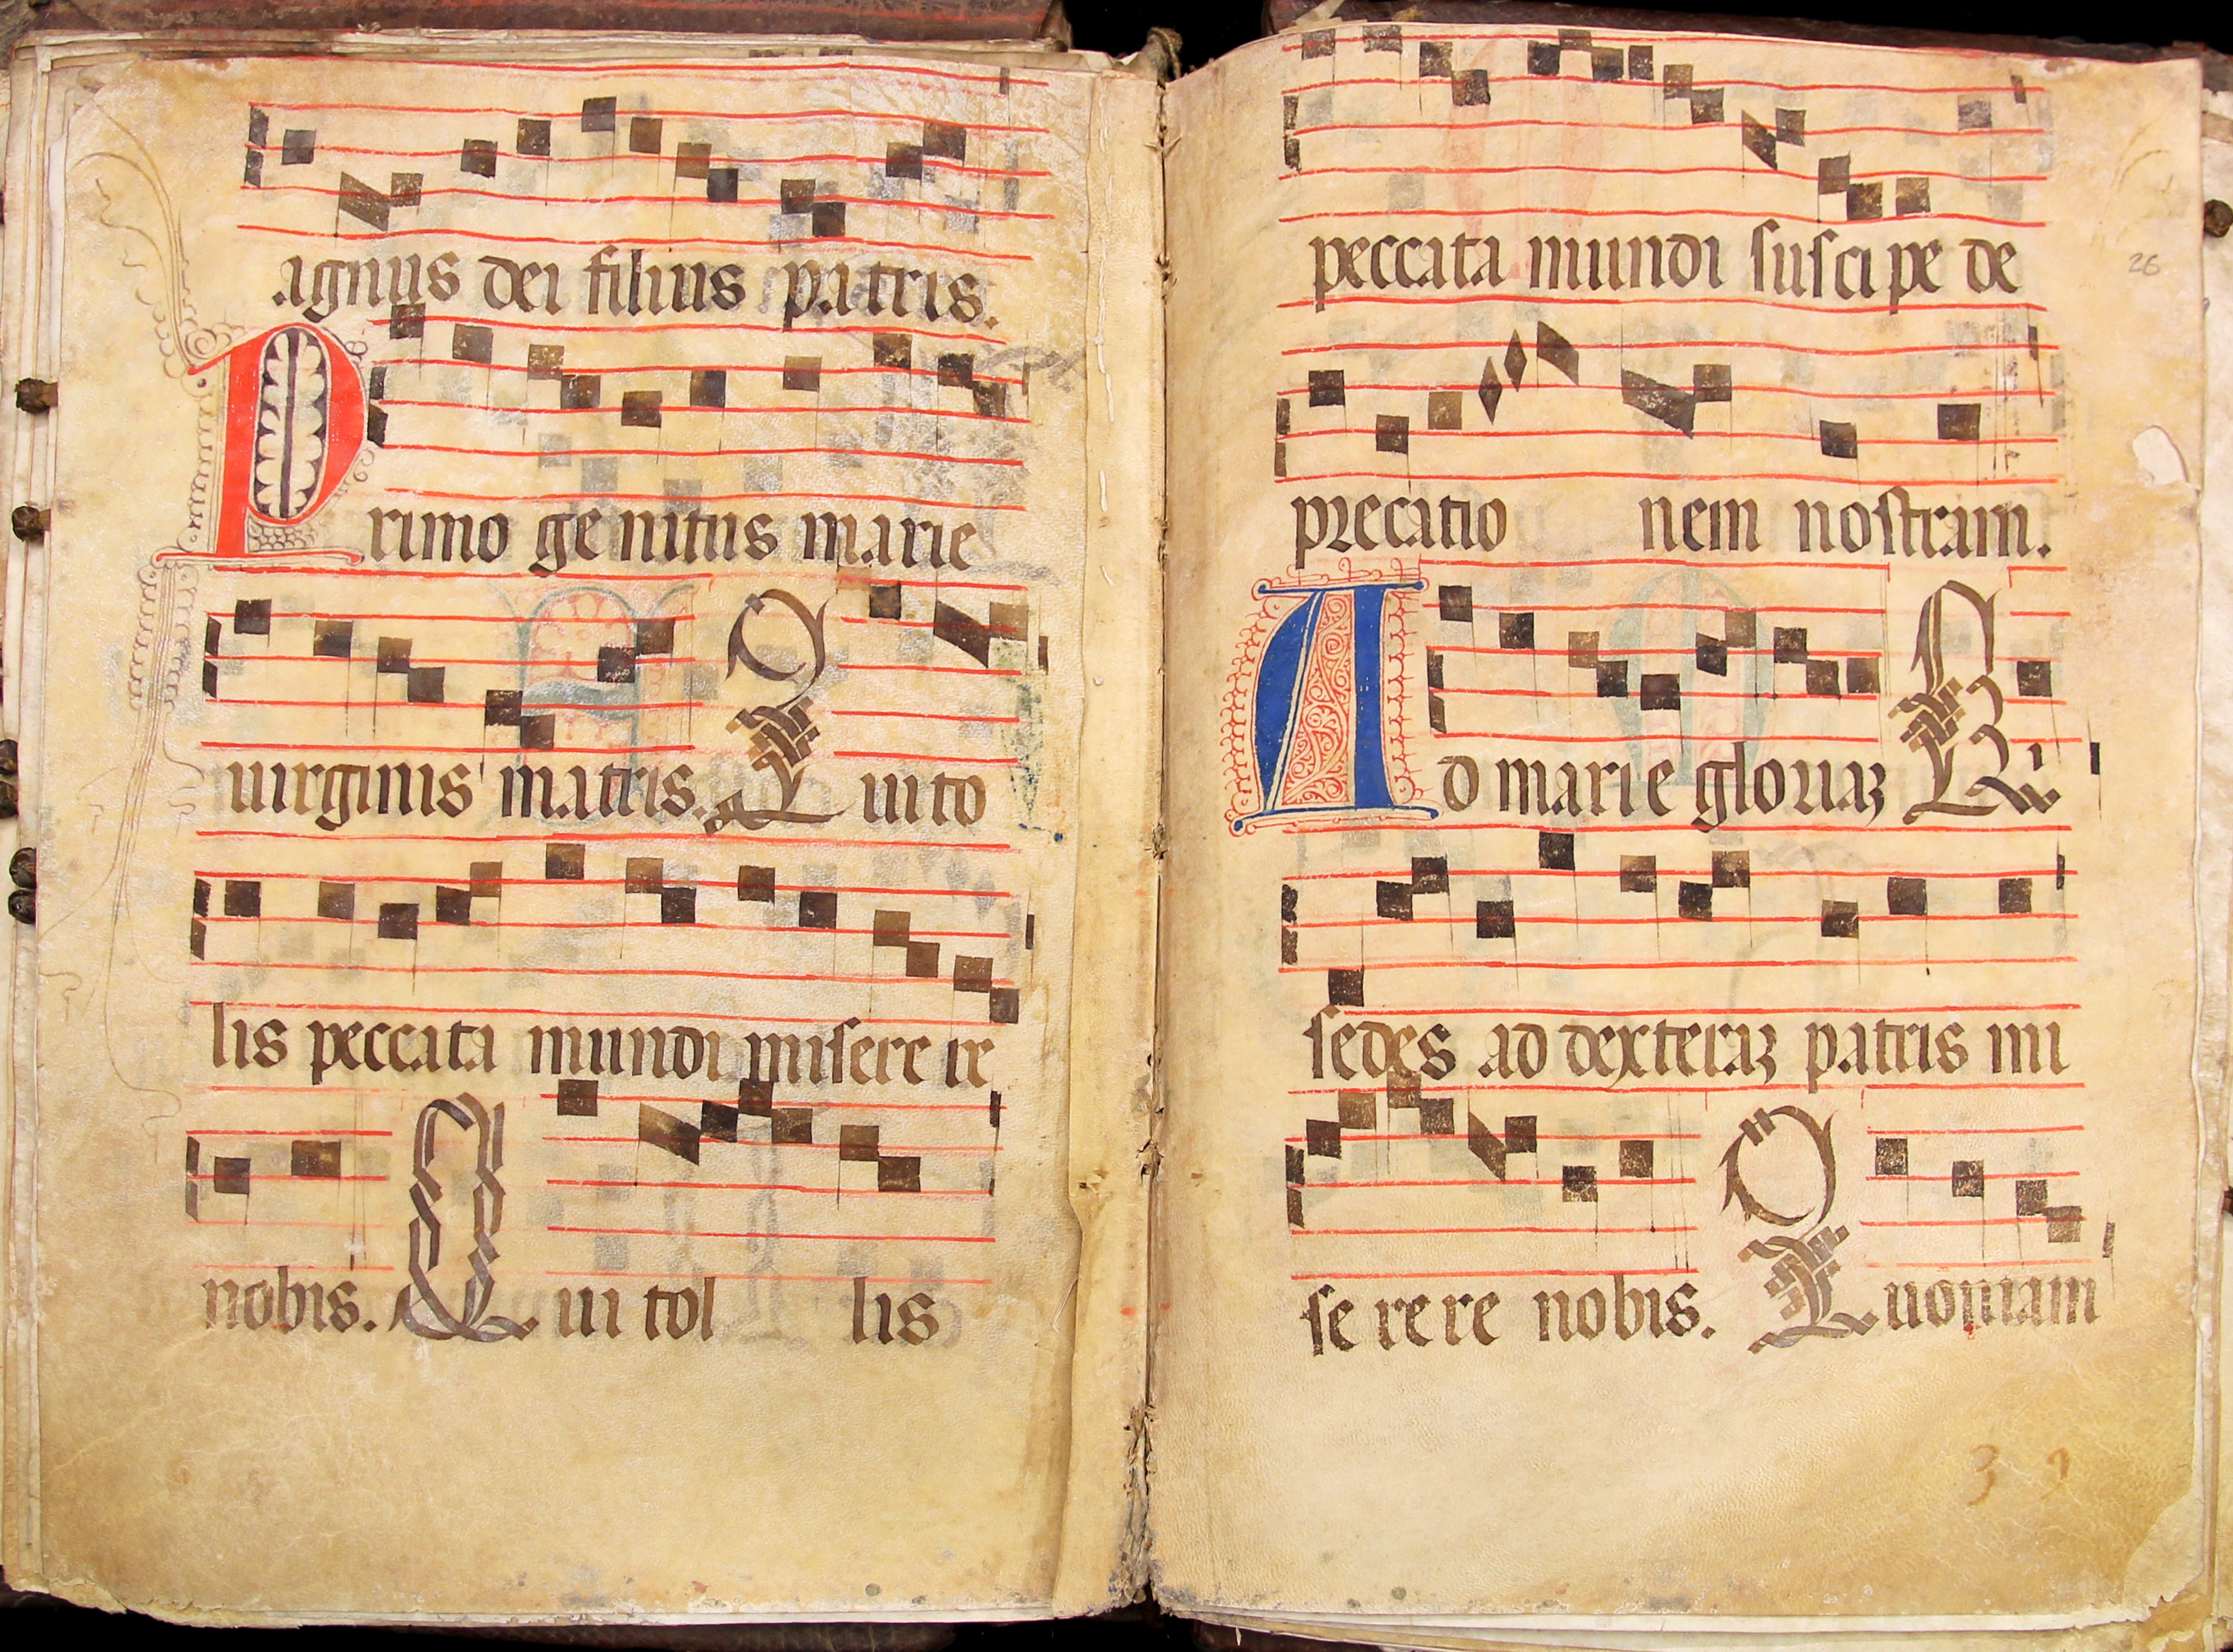 agnus dei filius patris.
Primo genitus marie
uirginis matris. Qui to
lis peccata mundi misere re
nobis. Qui tol lis
peccata mundi suscipe de
26
precatio nem nostram.
Ad marie gloriaꝫ Qui
sedes ad dexteraꝫ patris mi
se rere nobis. Quoniam
39